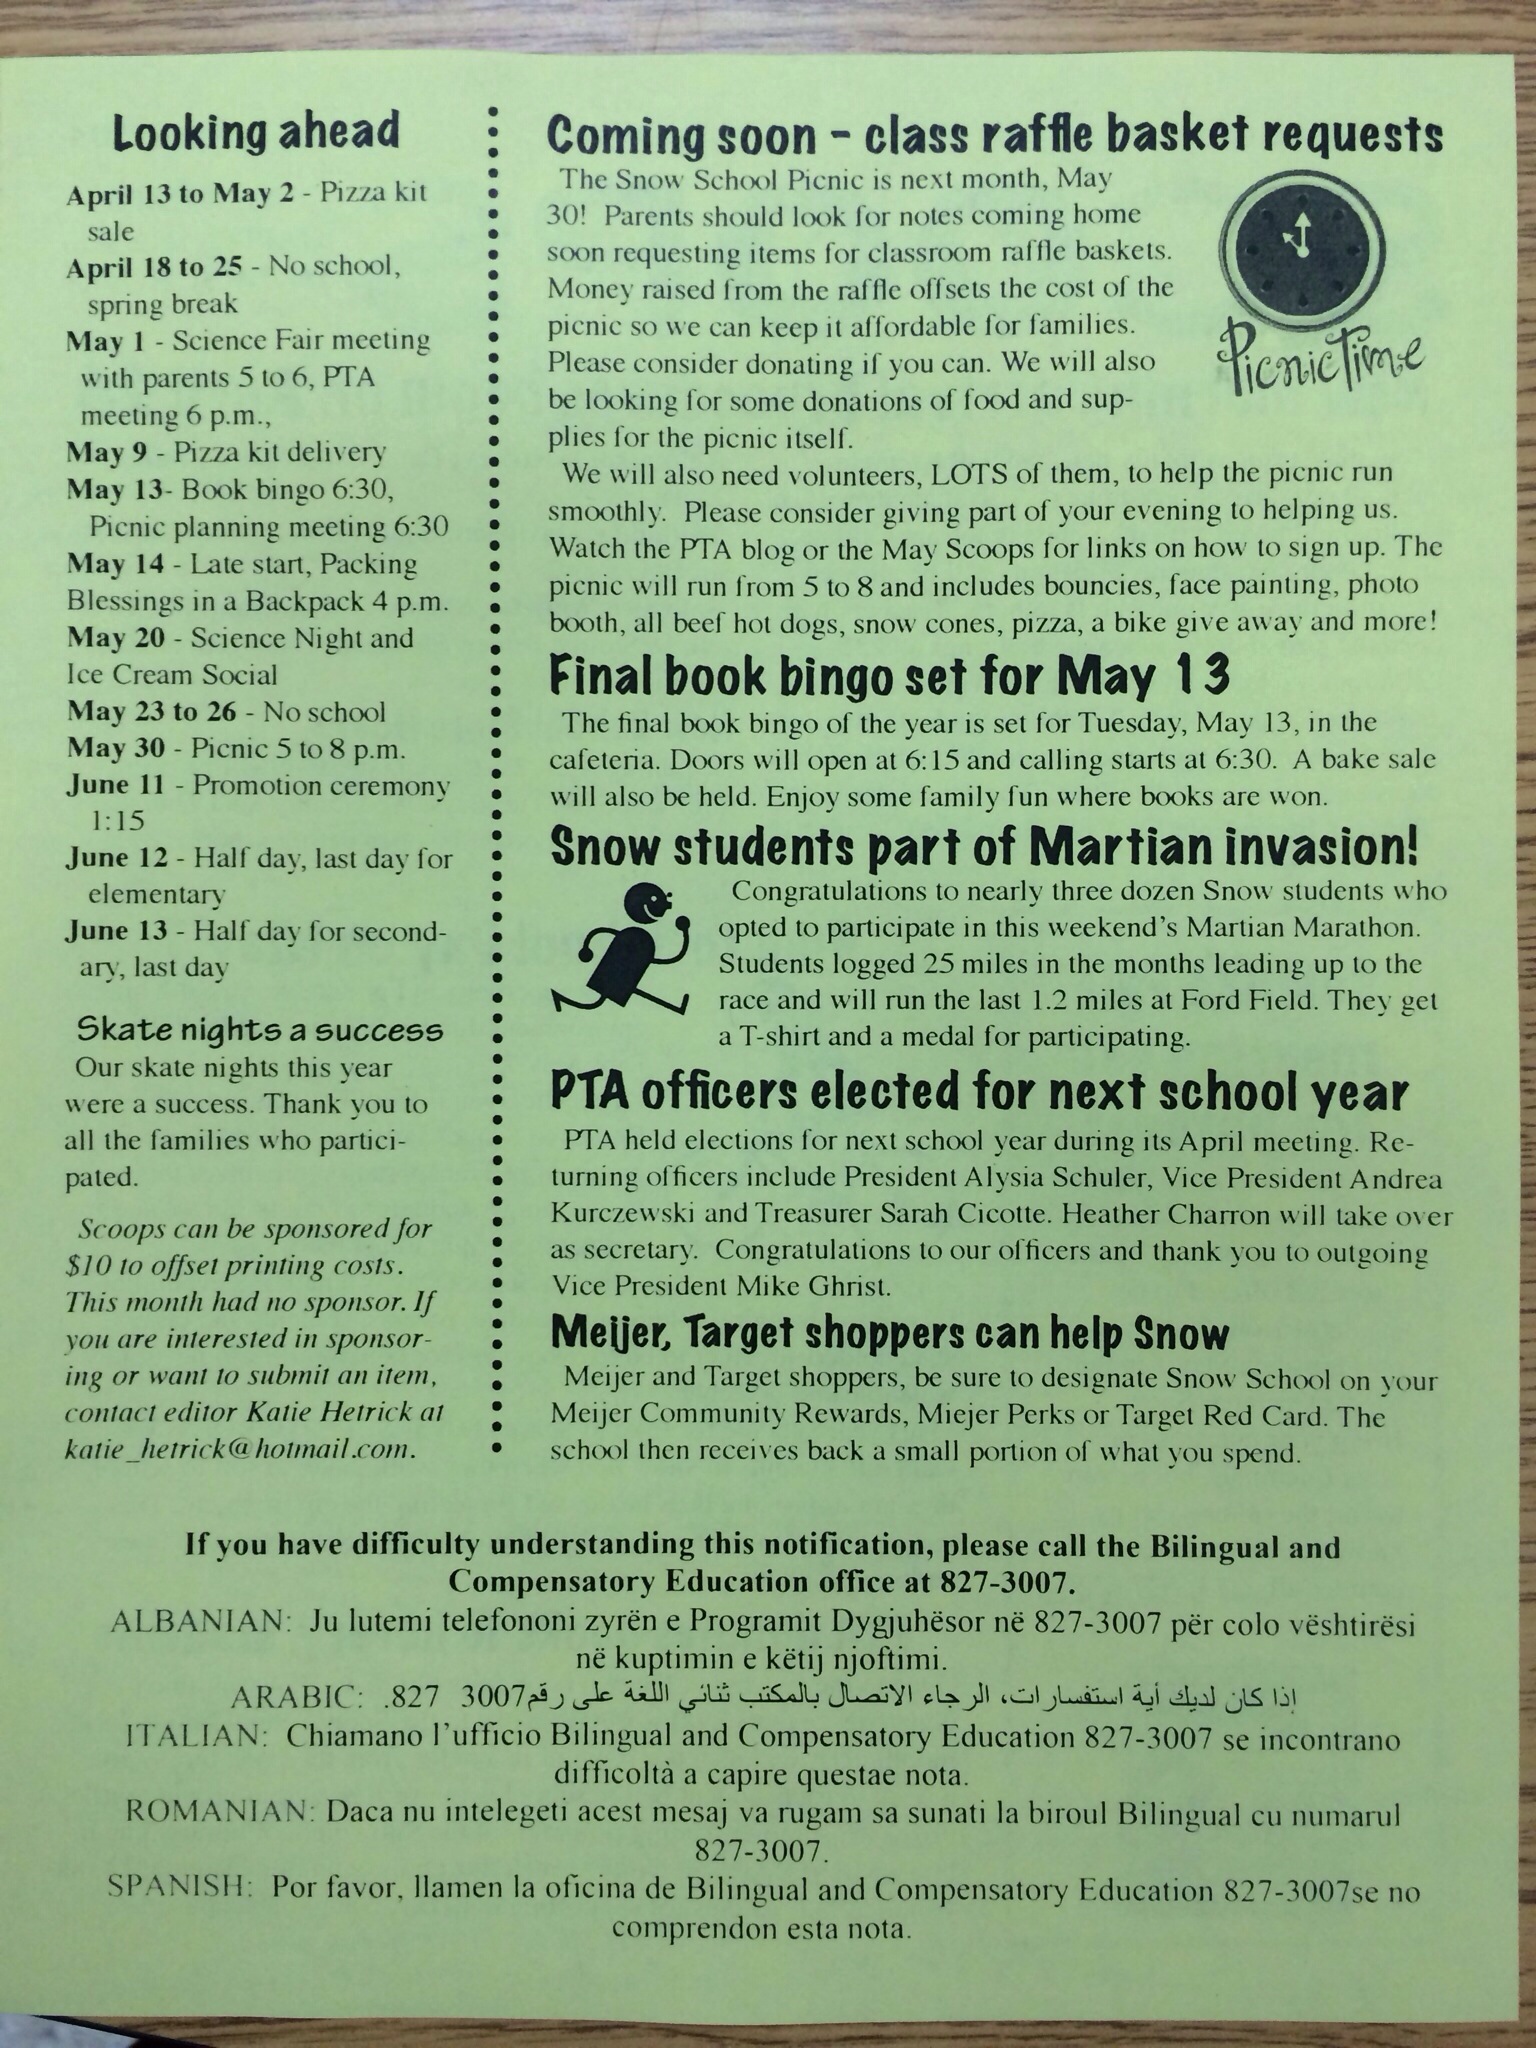 Looking ahead
April 13 to May 2 - Pizza kit
sale
April 18 to 25 - No school,
spring break
May 1 - Science Fair meeting
with parents 5 to 6, PTA
meeting 6 p.m.,
May 9 - Pizza kit delivery
May 13- Book bingo 6:30,
Picnic planning meeting 6:30
May 14 - Late start, Packing
Blessings in a Backpack 4 p.m.
May 20 - Science Night and
Ice Cream Social
May 23 to 26 - No school
May 30 - Picnic 5 to 8 p.m.
June 11 - Promotion ceremony
1:15
June 12 - Half day, last day for
elementary
June 13 - Half day for second-
ary, last day
Skate nights a success
Our skate nights this year
were a success. Thank you to
all the families who partici-
pated.
Scoops can be sponsored for
$10 to offset printing costs.
This month had no sponsor. If
you are interested in sponsor-
ing or want to submit an item,
contact editor Katie Hetrick at
katie_hetrick@hotmail.com.
Coming soon - class raffle basket requests
The Snow School Picnic is next month, May
30! Parents should look for notes coming home
soon requesting items for classroom raffle baskets.
Money raised from the raffle offsets the cost of the
picnic so we can keep it affordable for families.
Please consider donating if you can. We will also
be looking for some donations of food and sup-
plies for the picnic itself.
PicnicTime
We will also need volunteers, LOTS of them, to help the picnic run
smoothly. Please consider giving part of your evening to helping us.
Watch the PTA blog or the May Scoops for links on how to sign up. The
picnic will run from 5 to 8 and includes bouncies, face painting, photo
booth, all beef hot dogs, snow cones, pizza, a bike give away and more!
Final book bingo set for May 13
The final book bingo of the year is set for Tuesday, May 13, in the
cafeteria. Doors will open at 6:15 and calling starts at 6:30. A bake sale
will also be held. Enjoy some family fun where books are won.
Snow students part of Martian invasion!
Congratulations to nearly three dozen Snow students who
opted to participate in this weekend's Martian Marathon.
Students logged 25 miles in the months leading up to the
race and will run the last 1.2 miles at Ford Field. They get
a T-shirt and a medal for participating.
PTA officers elected for next school year
PTA held elections for next school year during its April meeting. Re-
turning officers include President Alysia Schuler, Vice President Andrea
Kurczewski and Treasurer Sarah Cicotte. Heather Charron will take over
as secretary. Congratulations to our officers and thank you to outgoing
Vice President Mike Ghrist.
Meijer, Target shoppers can help Snow
Meijer and Target shoppers, be sure to designate Snow School on your
Meijer Community Rewards, Miejer Perks or Target Red Card. The
school then receives back a small portion of what you spend.
If you have difficulty understanding this notification, please call the Bilingual and
Compensatory Education office at 827-3007.
ALBANIAN: Ju lutemi telefononi zyrën e Programit Dygjuhësor në 827-3007 për colo vështirësi
në kuptimin e këtij njoftimi.
ARABIC: إذا كان لديك أية استفسارات، الرجاء الاتصال بالمكتب ثنائي اللغة على رقم3007 827.
ITALIAN: Chiamano l'ufficio Bilingual and Compensatory Education 827-3007 se incontrano
difficoltà a capire questae nota.
ROMANIAN: Daca nu intelegeti acest mesaj va rugam sa sunati la biroul Bilingual cu numarul
827-3007.
SPANISH: Por favor, llamen la oficina de Bilingual and Compensatory Education 827-3007se no
comprendon esta nota.